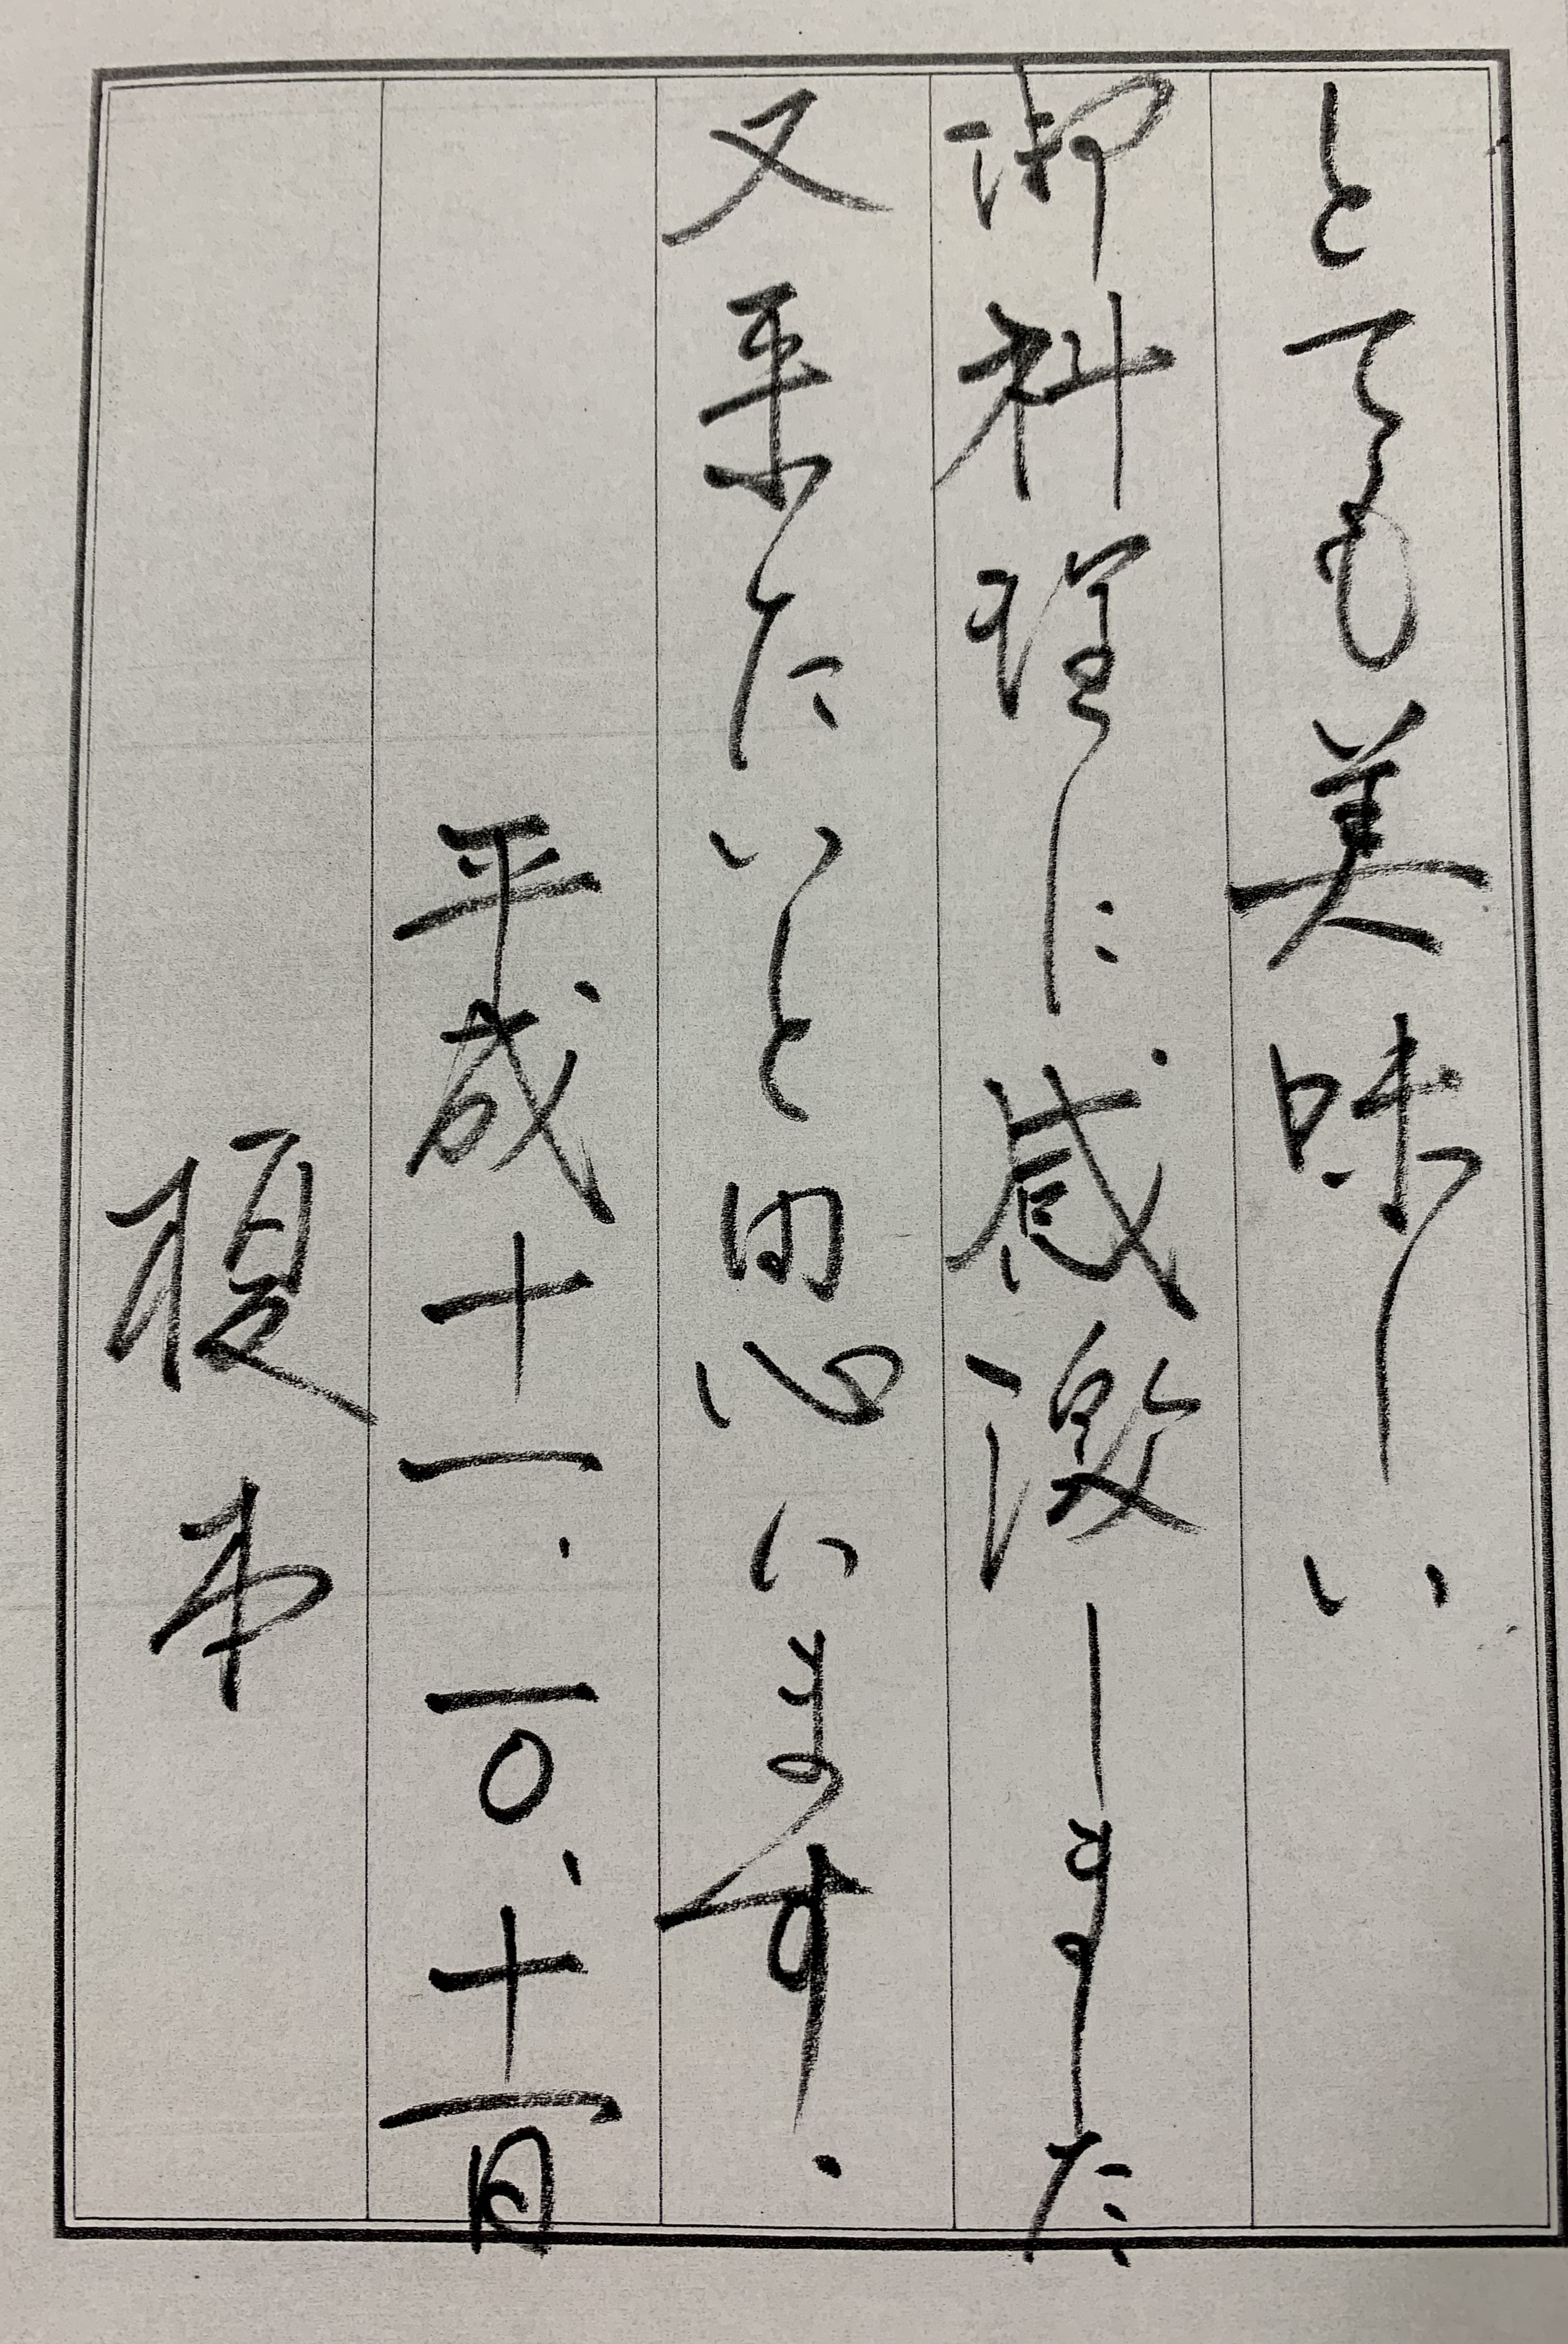 とても美味しい
御料理に感激しました
又来たいと思います.
平成十一.一〇.十一日
榎本